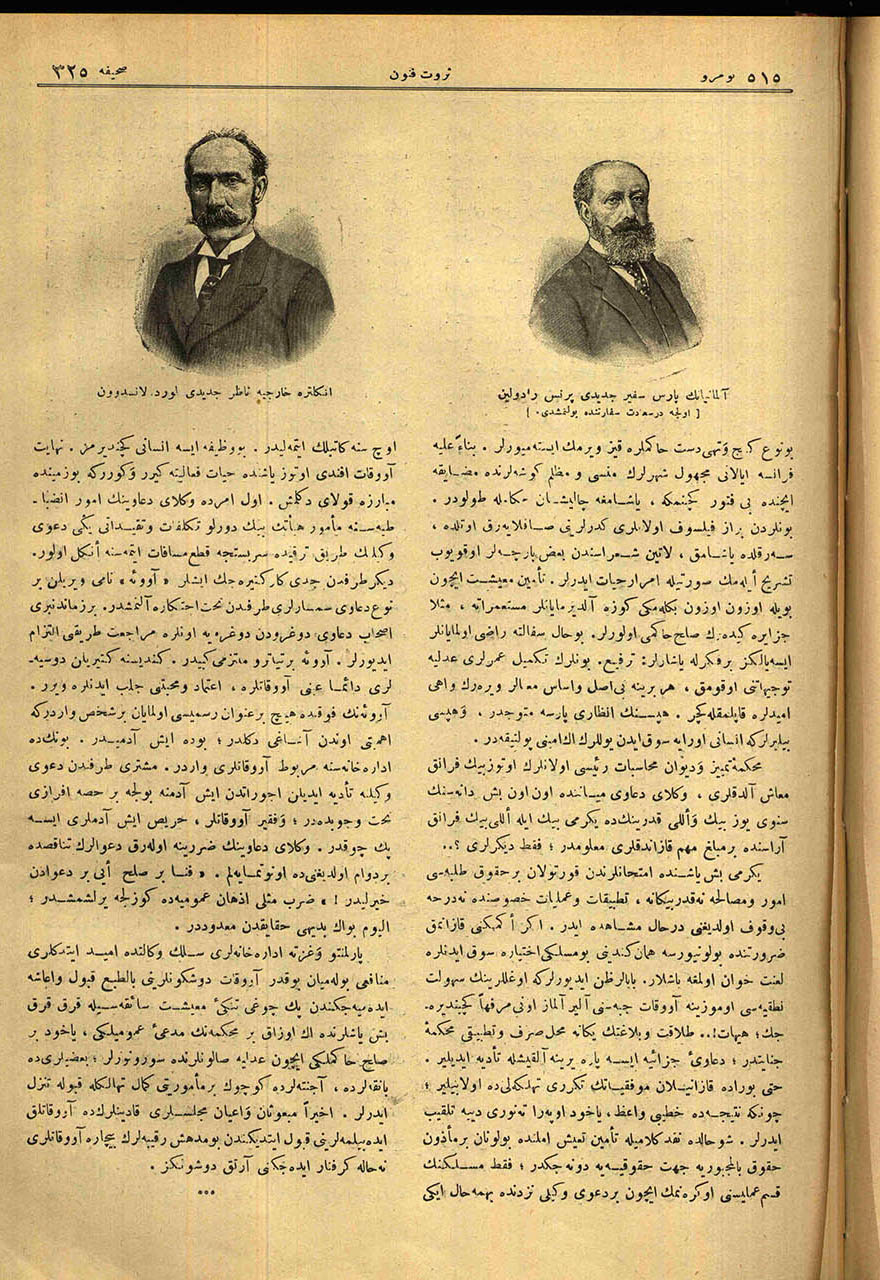 نومرو ٥١٥
ثروت فنون
صحیفه ٣٢٥
آلمانیانك پارس سفیر جدیدی پرنس رادولین
[ اولجه درسعادت سفارتنده بولنمشدی . ]
انکلتره خارجیه ناظر جدیدی لورد لانسدوون
بونوع کنج وتهی‌دست حاکملره قیز ویرمك ایسته‌میورلر . بناءً علیه
فرانسه ایالاتی مجهول شهرلرك منسی و مظلم کوشه‌لرنده مضایقه
ایچنده بی فتور کچینمکه ، یاشامغه چالیشان حکامله طولودر .
بونلردن براز فیلسوف اولانلری کدرلرینی صاقلایه‌رق اوتلده ،
سه‌رقلده یاشامق ، لاتین شعراسندن بعض پارچه‌لر اوقویوب
تشریح ایله‌مك صورتیله امرار حیات ایدرلر . تأمین معیشت ایچون
بویله اوزون اوزون بکله‌مکی کوزه آلدیرمایانلر مستعمراته ، مثلا
جزایره کیده‌رك صلح حاکمی اولورلر . بوحال سفالته راضی اولمایانلر
ایسه یالکز برفکرله یاشارلر : ترفیع . بونلرك تکمیل عمرلری عدلیه
توجیهاتنی اوقومق ، هر برینه بی اصل واساس معنالر ویره‌رك واهی
امیدلره قاپلمقله کچر . هپسنك انظاری پارسه متوجهدر ، وهپسی
بیلیرلرکه انسانی اورایه سوق ایدن یوللرك اك امینی پولتیقه‌در .
محکمهٔ تمییز ودیوان محاسبات رئیسی اولانلرك اوتوز بیك فرانق
معاش آلدقلری ، وکلای دعاوی میاننده اون اون بش دانه‌سنك
سنوی یوز بیك واللی قدرینك‌ده یکرمی بیك ایله اللی بیك فرانق
آراسنده برمبلغ مهم قازاندقلری معلومدر ؛ فقط دیکرلری ؟ ..
یکرمی بش یاشنده امتحانلرندن قورتولان برحقوق طلبه‌سی
امور ومصالحه نه‌قدر بیکانه ، تطبیقات وعملیات خصوصنده نه‌درجه
بی‌وقوف اولدیغنی درحال مشاهده ایدر . اکر اکمکنی قازانمق
ضرورتنده بولونیورسه همان کندینی بومسلکی اختیاره سوق ایدنلره
لعنت خوان اولمغه باشلار . بابالر ظن ایدیورلرکه اوغللرینك سهولت
نطقیه‌سی اوموزینه آووقات جبه‌سنی آلیر آلماز اونی مرفهاً کچیندیره‌-
جك ؛ هیهات ! .. طلاقت وبلاغتك یکانه محل صرف وتطبیقی محکمهٔ
جنایتدر ؛ دعاوئ جزائیه ایسه پاره یرینه آلقیشله تأدیه ایدیلیر .
حتی بوراده قازانیلان موفقیاتك تکرری تهلکه‌لی‌ده اولابیلیر ؛
چونکه نتیجه‌ده خطیبی واعظ ، یاخود اوپه‌را ته‌نوری دییه تلقیب
ایدرلر . شوحالده نقد کلامیله تأمین تعیش املنده بولونان برمأذون
حقوق بالمجبوریه جهت حقوقیه‌یه دونه‌جکدر ؛ فقط مسلکنك
قسم عملیسنی اوکره‌نمك ایچون بردعوی وکیلی نزدنده بهمه‌حال ایکی
اوچ سنه کاتبلك ایتمه‌لیدر . بووظیفه ایسه انسانی کچیندیرمز . نهایت
آووقات افندی اوتوز یاشنده حیات فعالیته کیرر وکوررکه بوزمینده
مبارزه قولای دکلمش . اول امرده وکلای دعاوینك امور انضبا-
طیه‌سنه مأمور هیأتك بیك دورلو تکلفات وتقیداتی یکی دعوی
وکیلنك طریق ترفیده سربستجه قطع مسافات ایتمه‌سنه انکل اولور .
دیکر طرفدن جدی کار کتیره‌جك ایشلر « آووئه » نامی ویریلن بر
نوع دعاوی سمسارلری طرفندن تحت احتکاره آلنمشدر . برزماندنبری
اصحاب دعاوی دوغرودن دوغری‌یه اونلره مراجعت طریقنی التزام
ایدیورلر . آووئه برتیاترو ملتزمی کبیدر . کندیسنه کتیریلن دوسیه-
لری دائما عینی آووقاتلره ، اعتماد ومحبتنی جلب ایدنلره ویرر .
آووئه‌نك فوقنده هیچ برعنوان رسمیسی اولمایان برشخص واردرکه
اهمیتی اوندن آشاغی دکلدر ؛ بوده ایش آدمیدر . بونك‌ده
اداره‌خانه‌سنه مربوط آووقاتلری واردر . مشتری طرفندن دعوی
وکیلنه تأدیه ایدیلن اجوراتدن ایش آدمنه بولجه بر حصه افرازی
تحت وجوبده‌در ؛ وفقیر آووقاتلر ، حریص ایش آدملری ایسه
پك چوقدر . وکلای دعاوینك ضررینه اوله‌رق دعوالرك تناقصده
بردوام اولدیغنی‌ده اونوتمایه‌لم . « فنا بر صلح ایی بر دعوادن
خیرلیدر ! » ضرب مثلی اذهان عمومیه‌ده کوزلجه یرلشمشدر ؛
الیوم بو اك بدیهی حقایقدن معدوددر .
پارلمنتو وغزته اداره‌خانه‌لری سلك وکالتده امید ایتدکلری
منافعی بوله‌میان بوقدر آووقات دوشکونلرینی بالطبع قبول واعاشه
ایده‌میه‌جکندن پك چوغی تنکئ معیشت سائقه‌سیله قرق قرق
بش یاشلرنده اك اوزاق بر محکمه‌نك مدعئ عمومیلکی ، یاخود بر
صلح حاکملکی ایچون عدلیه صالونلرنده سورونورلر ؛ بعضیلری‌ده
بانقه‌لرده ، آجنته‌لرده کوچوك برمأموریتی کمال تهالکله قبوله تنزل
ایدرلر . اخیراً مبعوثان واعیان مجلسلری قادینلرك‌ده آووقاتلق
ایده‌بیلمه‌لرینی قبول ایتدیکندن بومدهش رقیبه‌لرك بیچاره آووقاتلری
نه حاله کرفتار ایده‌جکنی آرتق دوشونکز .
***